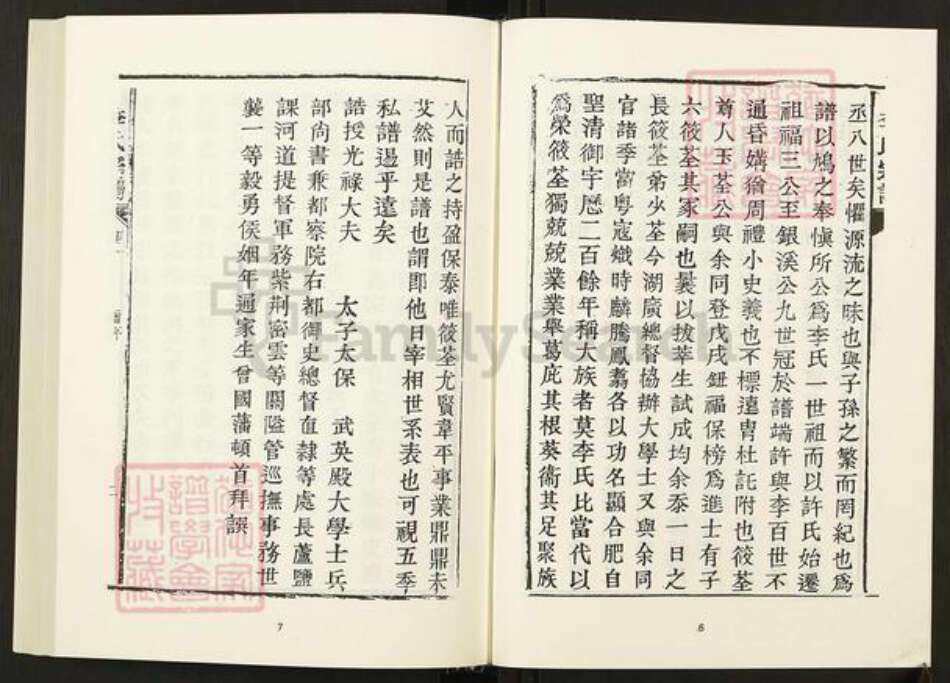 丞八世矣懼源流之昧也與子孫之繁而罔紀也爲
譜以鳩之奉愼所公爲李氏一世祖而以許氏始遷
祖福三公至銀溪公九世冠於譜端許與李百世不
通昏媾猶周禮小史義也不標遠冑杜託附也筱荃
尊人玉荃公與余同登戊戌鈕福保榜爲進士有子
六筱荃其冢嗣也曩以拔萃生試成均余忝一日之
長筱荃弟少荃今湖廣總督協辦大學士又與余同
官譜季當粤寇熾時麟騰鳳翥各以功名顯合肥自
聖清御宇歷二百餘年稱大族者莫李氏比當代以
爲榮筱荃獨兢兢業業舉葛庇其根葵衞其足聚族
6
人而誥之持盈保泰唯筱荃尤賢韋平事業鼎鼎未
艾然則是譜也謂即他日宰相世系表也可視五季
私譜邈乎遠矣
誥授光祿大夫 太子太保 武英殿大學士兵
部尚書兼都察院右都御史總督直隸等處長蘆鹽
課河道提督軍務紫荆密雲等關隘管巡撫事務世
襲一等毅勇侯姻年通家生曾國藩頓首拜譔
7
FamilySearch